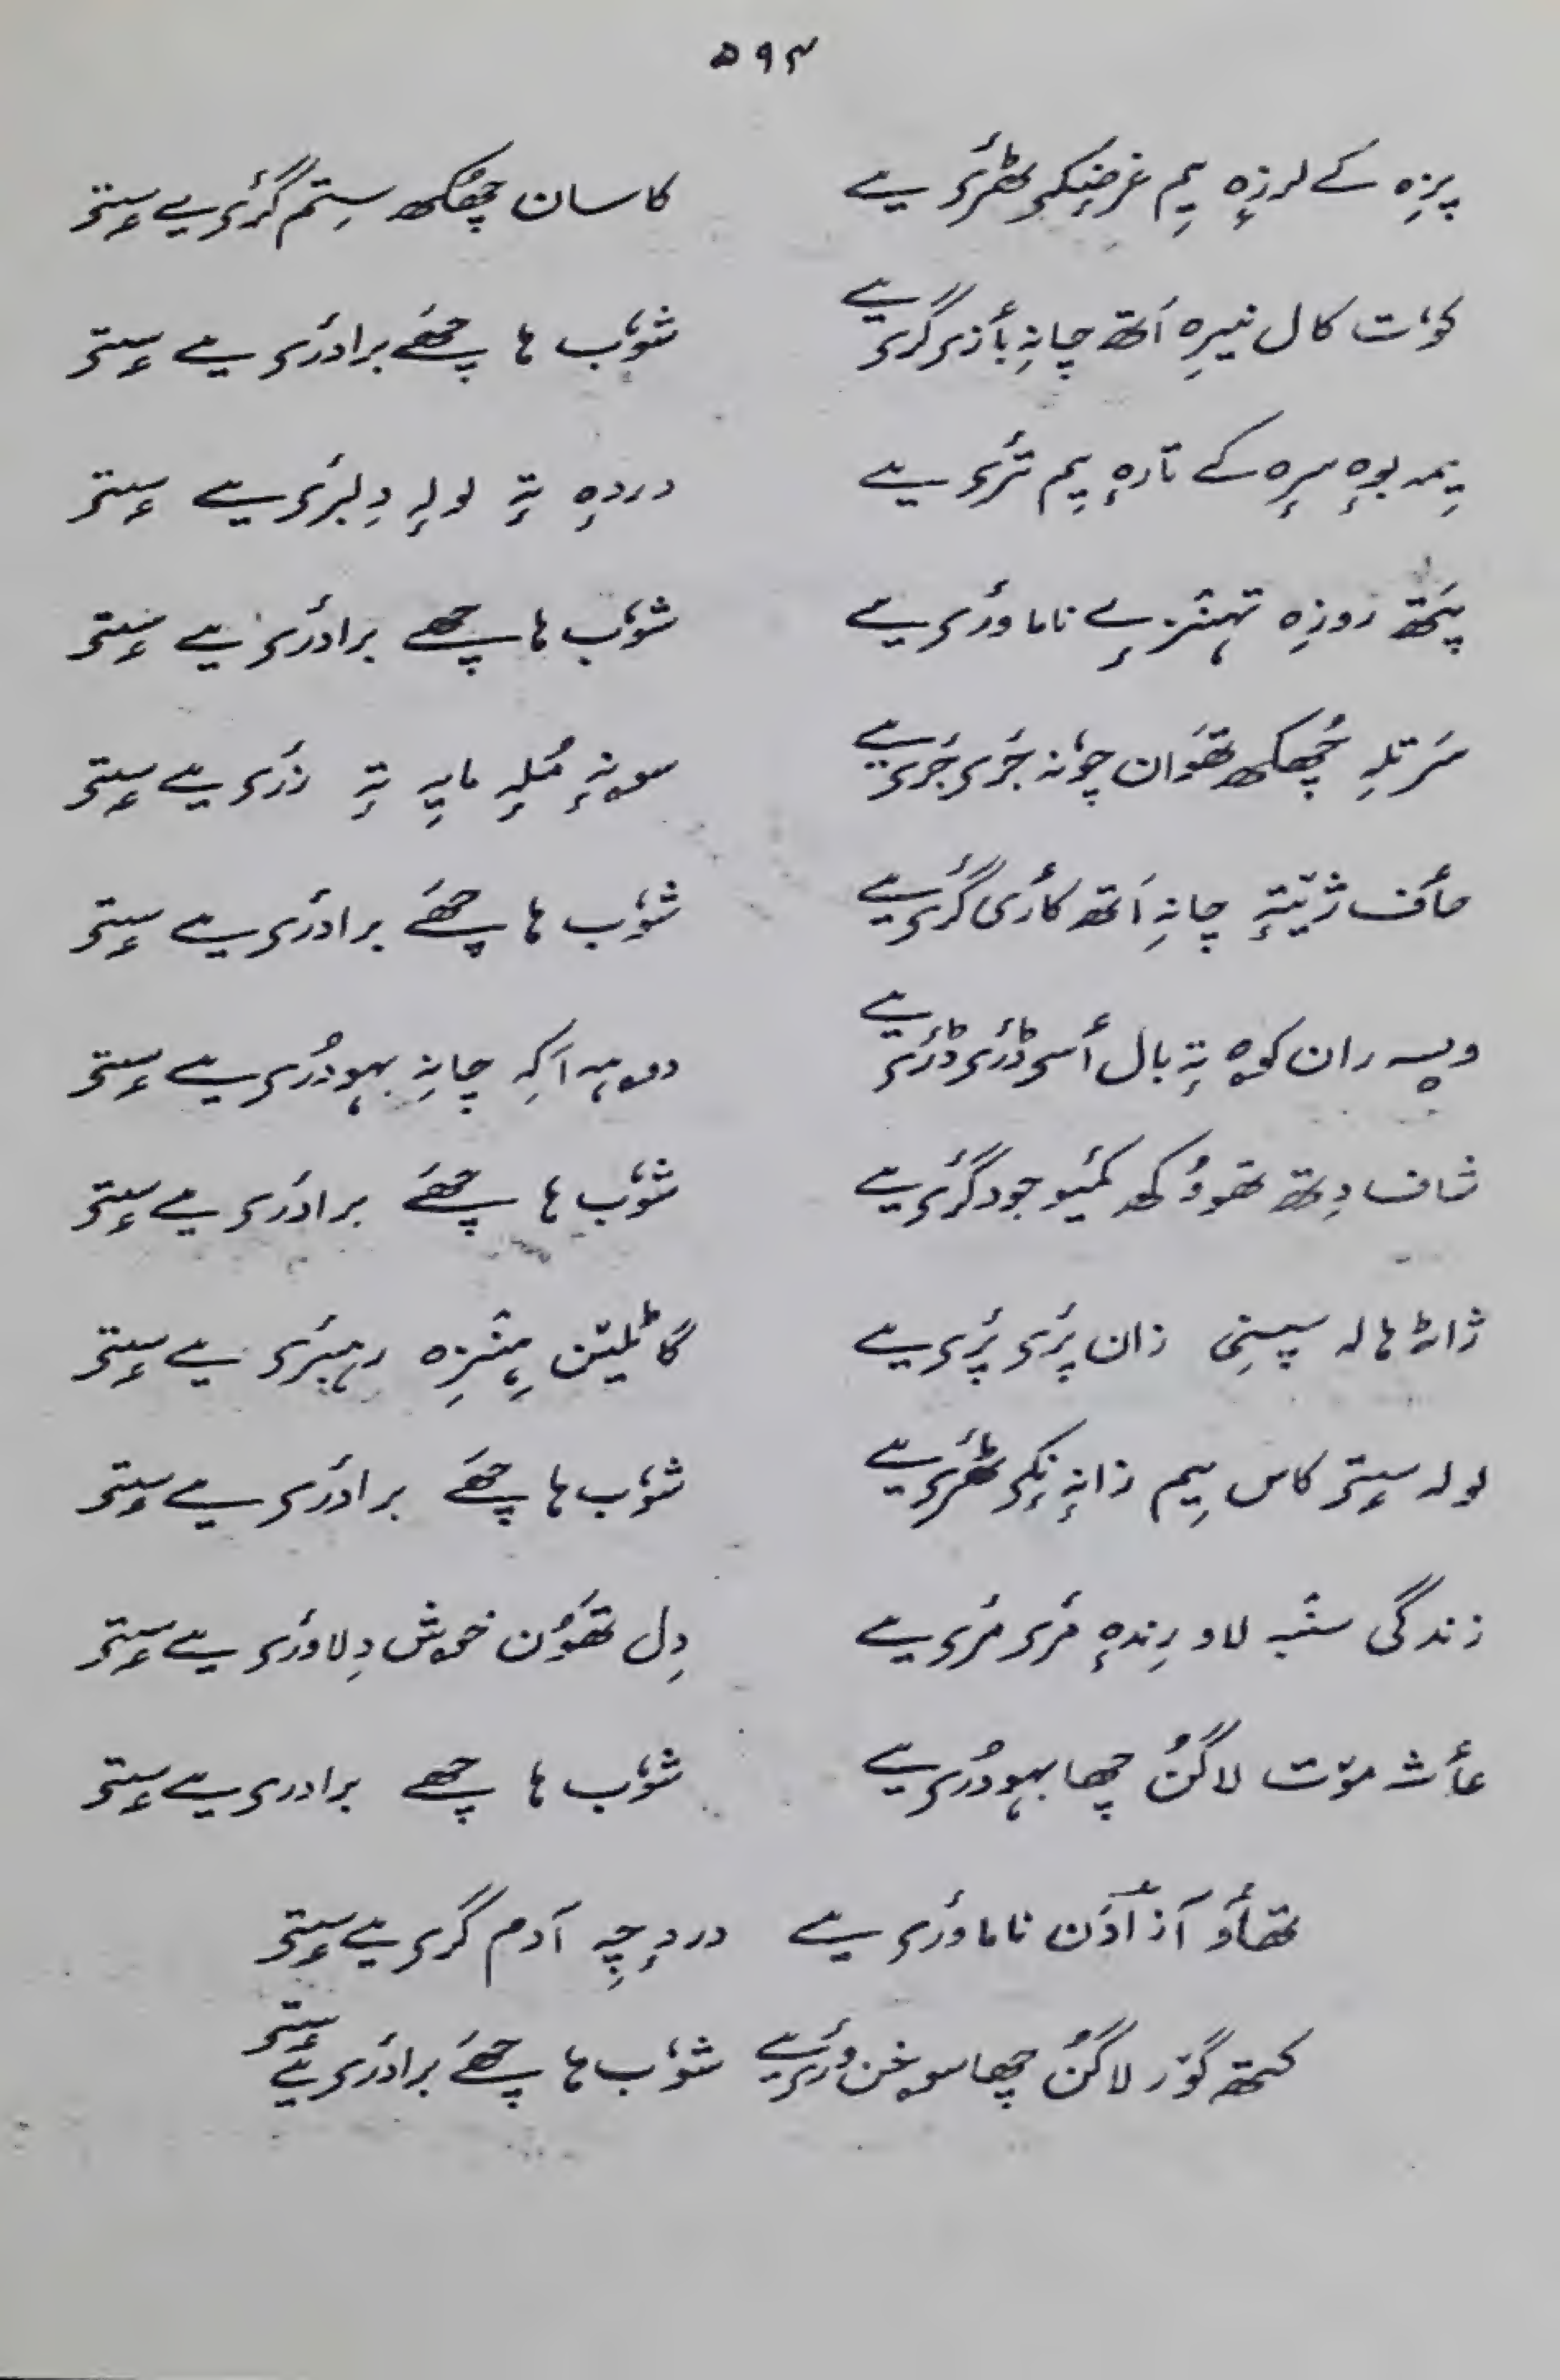 ۵۹۴
پزِہ کے لرزِہ یِم غرضٕکۍ ٹھٔرۍ یے کاسان چھُکھ سِتم گٔرۍ یے سٟتۍ
کوٚت کال نیرِہ اَتھ چانہِ بٲزۍ گری یے شوٗب ہا چھےَ برادرٔی یے سٟتۍ
یِمہ بوہٕ سرٕہ کے تارہٕ یِم ترٔی یے دردہٕ تہٕ لولہٕ دِلبرٔی یے سٟتۍ
پَتھ روزِہ تہٕنزٕے ناماورٔی یے شوٗب ہا چھے برادرٔی یے سٟتۍ
سَرتلہِ چھُکھ تھَوان چوٗنہ جٔرۍ جٔرۍ یے سونہٕ مُلہٕ مایہِ تہٕ زرٔی یے سٟتۍ
صٲف ژیٚتہٕ چانہِ اَتھ کٲرۍ گرٔی یے شوٗب ہا چھےَ برادرٔی یے سٟتۍ
ویسہ ران کوہ تہٕ بال أسۍ ڈٔرۍ ڈٔرۍ یے دوہہ اَکہِ چانہِ بہودُری یے سٟتۍ
شاف دِتھ تھوٚوُکھ کمیو جودگرٔی یے شوٗب ہا چھےَ برادرٔی یے سٟتۍ
ژاٹہٕ ہالہ سپنی زان پرٔۍ پرٔۍ یے گاٹلیٚن ہِنٛزِہ رہبرٔی یے سٟتۍ
لولہ سٟتۍ کاس یِم زانہٕ نٕکۍ ٹھٔرۍ یے شوٗب ہا چھےَ برادرٔی یے سٟتۍ
زندگی سنٛبہ لاو رِندہٕ مٔرۍ مٔرۍ یے دِل تھَوُن خوش دِلاورٔی یے سٟتۍ
عٲش موٚت لاگُن چھا بہودُری یے شوٗب ہا چھے برادری یے سٟتۍ
تھٲو آزادَن ناماورٔی یے دردٕچہِ آدم گری یے سٟتۍ
کتھ گوٚر لاگُن چھا سوخن ورٔی یے شوٗب ہا چھےَ برادرٔی یے سٟتۍ